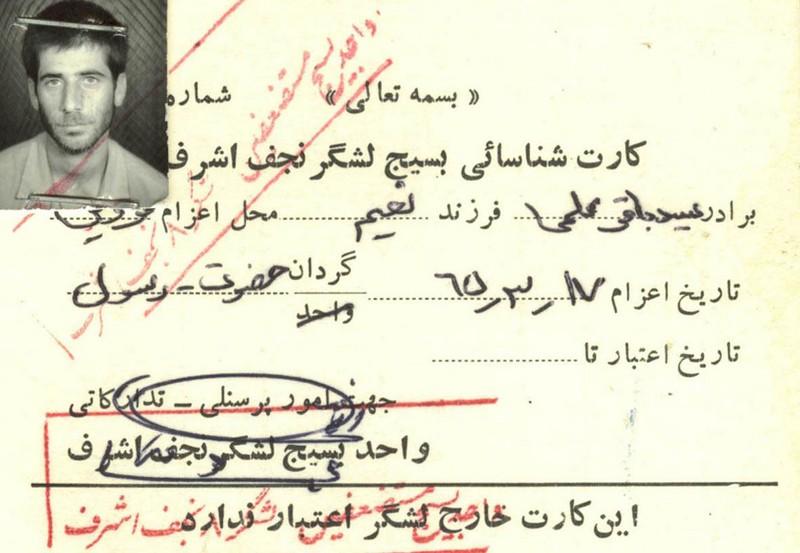 « بسمه تعالی » شماره
کارت شناسائی بسیج لشگر نجف اشرف
برادر سیدباقر علمی فرزند نعیم محل اعزام
تاریخ اعزام ۱۷ر۳ر۶۵ گردان حضرت رسول
واحد
تاریخ اعتبار تا
جهت امور پرسنلی ــ تدارکاتی
واحد بسیج لشگر نجف اشرف
این کارت خارج لشگر اعتبار ندارد
واحد بسیج مستضعفین لشگر ۸ نجف اشرف